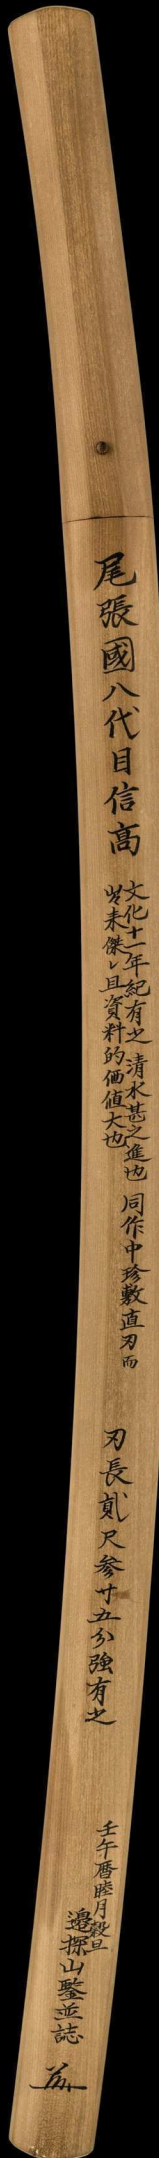 尾張國八代目信高
文化十一年紀有之 清水甚之進也 同作中珍敷直刃而
出来傑レ且資料的価値大也
刃長貳尺参寸五分強有之
壬午暦睦月穀旦
邉探山鑒並誌